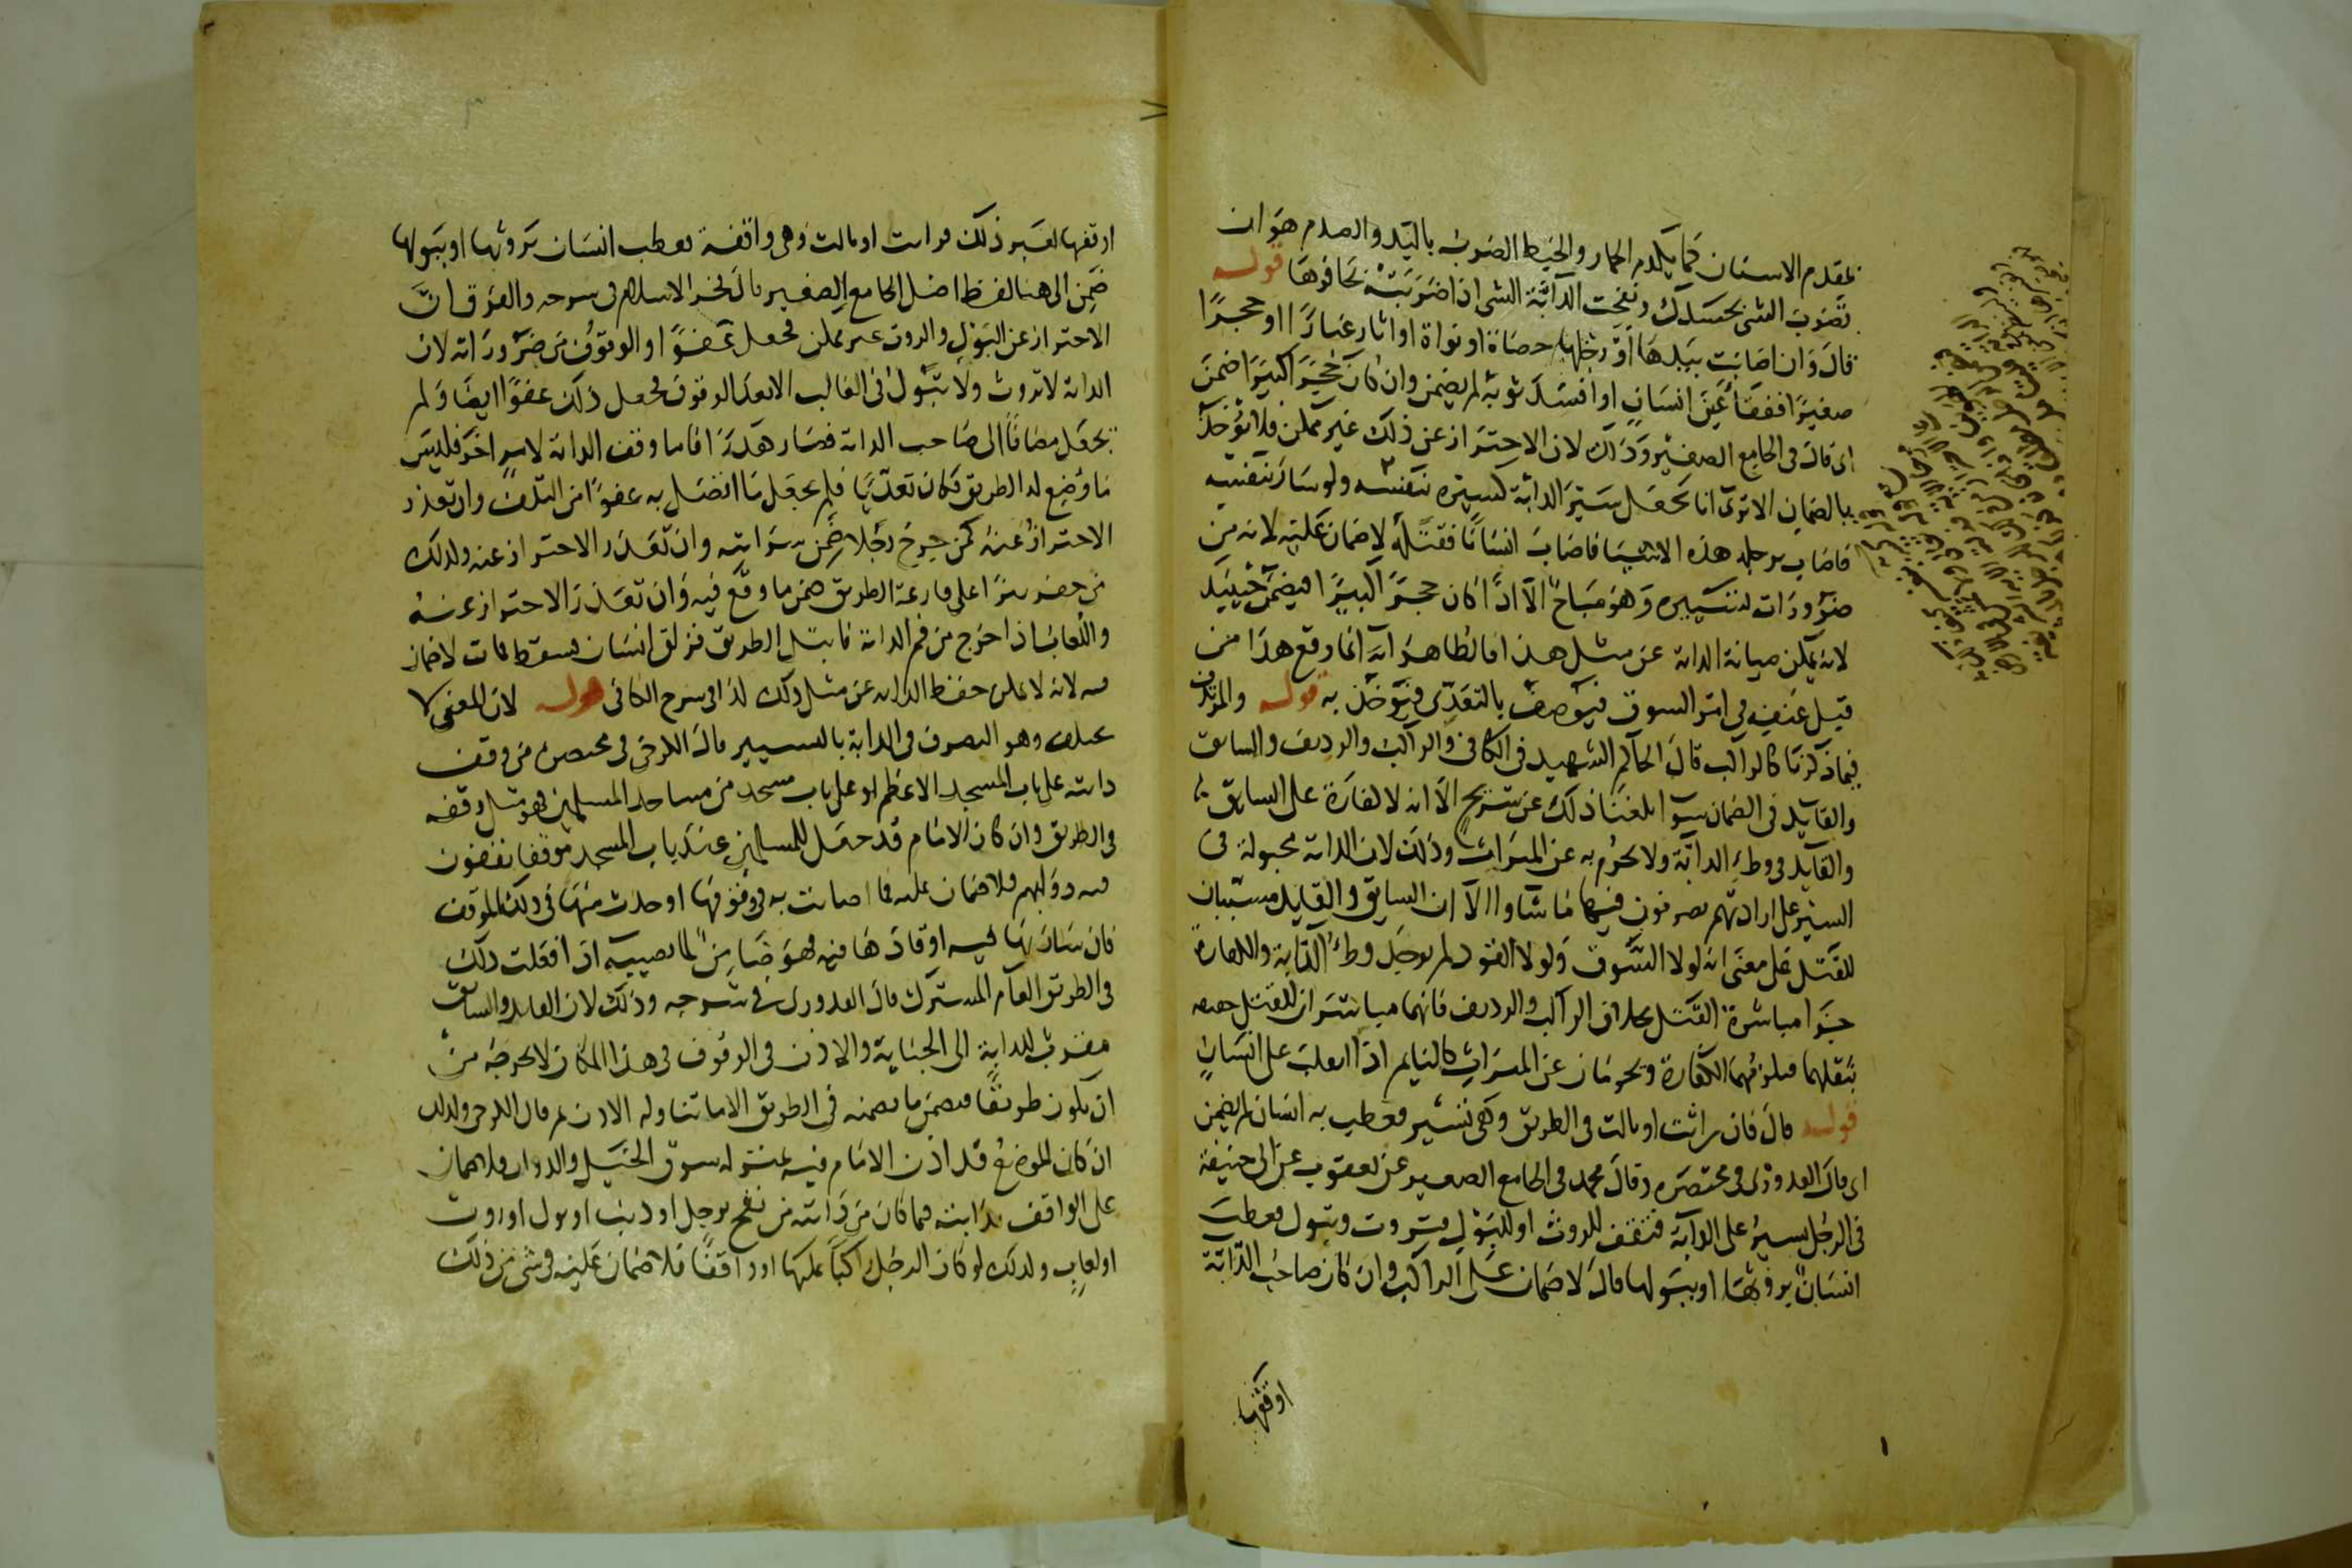 بمقدم الاسنان كما يكدم الحمار والخبط الضرب باليد والصدم هو ان
تضرب الشئ بجسدك ونفحت الدابة الشئ اذا ضربته بحافرها قوله
قال وان اصابت بيدها او رجلها حصاة او نواة او اثار غبارا او حجرا
صغيرا ففقأ عين انسان او افسد ثوبه لم يضمن وان كان حجرا كبيرا ضمن
اى قال فى الجامع الصغير وذلك لان الاحتراز عن ذلك غير ممكن فلا يؤخذ
بالضمان الا ترى انا نجعل سير الدابة كسيره بنفسه ولو سار بنفسه
فاصاب برجله هذه الاشيا فاصاب انسانا فقتله لا ضمان عليه لانه من
ضرورات تسييره وهو مباح الا اذا كان حجرا كبيرا فيضمن حينئذ
لانه يمكن صيانة الدابة عن مثل هذا فالظاهر انه انما وقع هذا من
قبل عنف فى امر السوق فيوصف بالتعدى فيؤخذ به قوله والمرتدف
فيما ذكرنا كالراكب قال الحاكم الشهيد فى الكافى والراكب والرديف والسايق
والقايد فى الضمان سوا بلغنا ذلك عن شريح الا انه لا كفارة على السايق
والقايد فى وطئ الدابة ولا يحرم به عن الميراث وذلك لان الدابة محبولة فى
السير على ارادتهم يصرفون فيها ما شاوا الا ان السايق والقايد مسببان
للقتل على معنى انه لولا السوق ولولا القود لم يوجد وطئ الدابة والكفارة
جزا مباشرة القتل بخلاف الراكب والرديف فانهما مباشران للقتل حقيقة
بثقلهما فيلزمهما الكفارة ويحرمان عن الميراث كالنايم اذا انقلب على انسان
قوله قال فان راثت او بالت فى الطريق وهى تسير فعطب به انسان لم يضمن
اى قال القدورى فى مختصره وقال محمد فى الجامع الصغير عن يعقوب عن ابى حنيفة
فى الرجل يسير على الدابة فتقف للروث او للبول فتروث وتبول فعطب
انسان بروثها او ببولها قال لا ضمان على الراكب وان كان صاحب الدابة
اوقفها
اوقفها لغير ذلك فراثت او بالت وهى واقفة فعطب انسان بروثها او ببولها
ضمن الى هنا لفظ اصل الجامع الصغير قال فخر الاسلام فى شرحه والفرق ان
الاحتراز عن البول والروث غير ممكن فجعل عفوا والوقوف من ضروراته لان
الدابة لا تروث ولا تبول فى الغالب الا بعد الوقوف فجعل ذلك عفوا ايضا ولم
يجعل مضافا الى صاحب الدابة فصار هدرا فاما وقف الدابة لامر اخر فليس
ما وضع له الطريق فكان تعديا فلم يجعل ما اتصل به عفوا من التلف وان تعذر
الاحتراز عنه كمن جرح رجلا ضمن سرايته وان تعذر الاحتراز عنه وكذلك
من حفر بئرا على قارعة الطريق ضمن ما وقع فيه وان تعذر الاحتراز عنه
واللعاب اذا خرج من فم الدابة فابتل الطريق فزلق انسان فسقط فمات لا ضمان
فيه لانه لا يمكن حفظ الدابة عن مثل ذلك كذا فى شرح الكافى قوله لان المعنى لا
يختلف وهو التصرف فى الدابة بالتسيير قال الكرخى فى مختصره من وقف
دابته على باب المسجد الاعظم او على باب مسجد من مساجد المسلمين فهو مثل وقفه
فى الطريق وان كان الامام قد جعل للمسلمين عند باب المسجد موقفا يقفون
فيه دوابهم فلا ضمان عليه فيما اصابت به فى وقوفها او حدث منها فى ذلك الموقف
فان سار بها فيه او قادها فيه فهو ضامن لما تصيبه اذا فعلت ذلك
فى الطريق العام المشترك قال القدورى فى شرحه وذلك لان القايد والسايق
مقرب للدابة الى الجناية والاذن فى الوقوف فى هذا المكان لا يخرجه من
ان يكون طريقا فيضمن ما يضمنه فى الطريق الا ما تناوله الاذن ثم قال الكرخى وكذلك
ان كان الموضع قد اذن الامام فيه بمنزلة سوق الخيل والدواب فلا ضمان
على الواقف بدابته فيما كان من دابته من نفح برجل او ذنب او بول او روث
او لعاب وكذلك لو كان الرجل راكبا عليها او واقفا فلا ضمان عليه فى شئ من ذلك